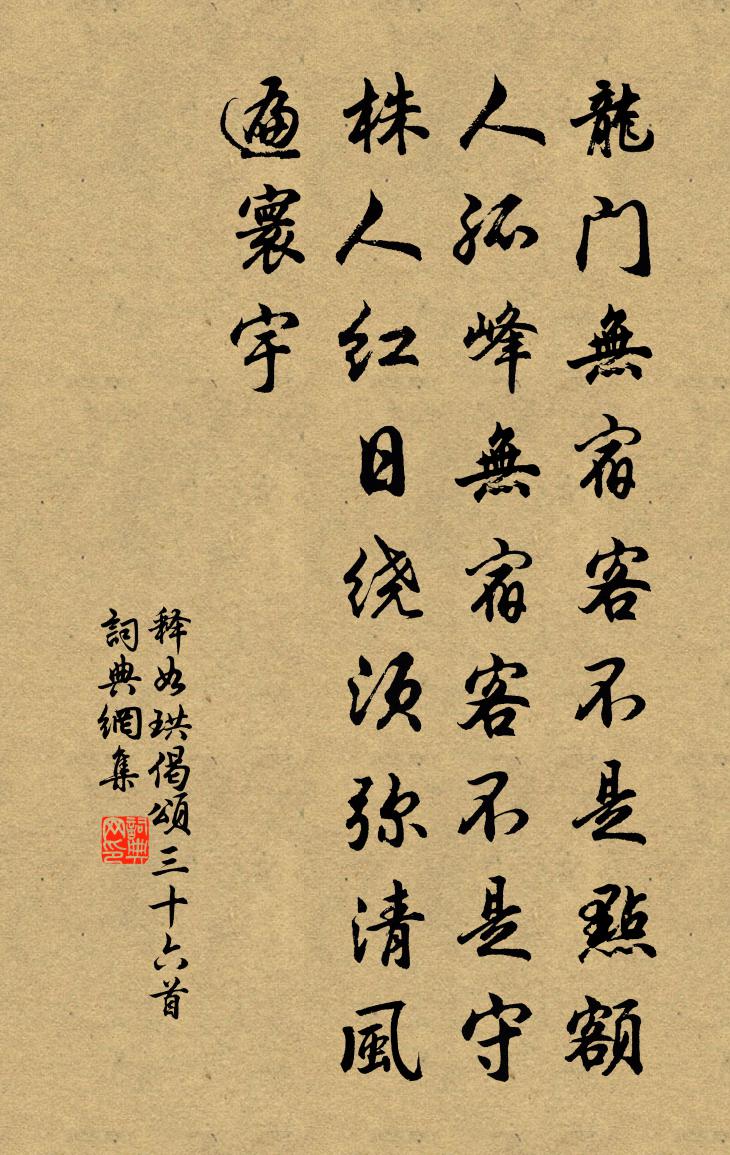 龍门無宿客不是點額
人孤峰無宿客不是守
株人红日绕须弥清風
遍寰宇
释如珙偈頌三十六首
詞典網集
詞典网印